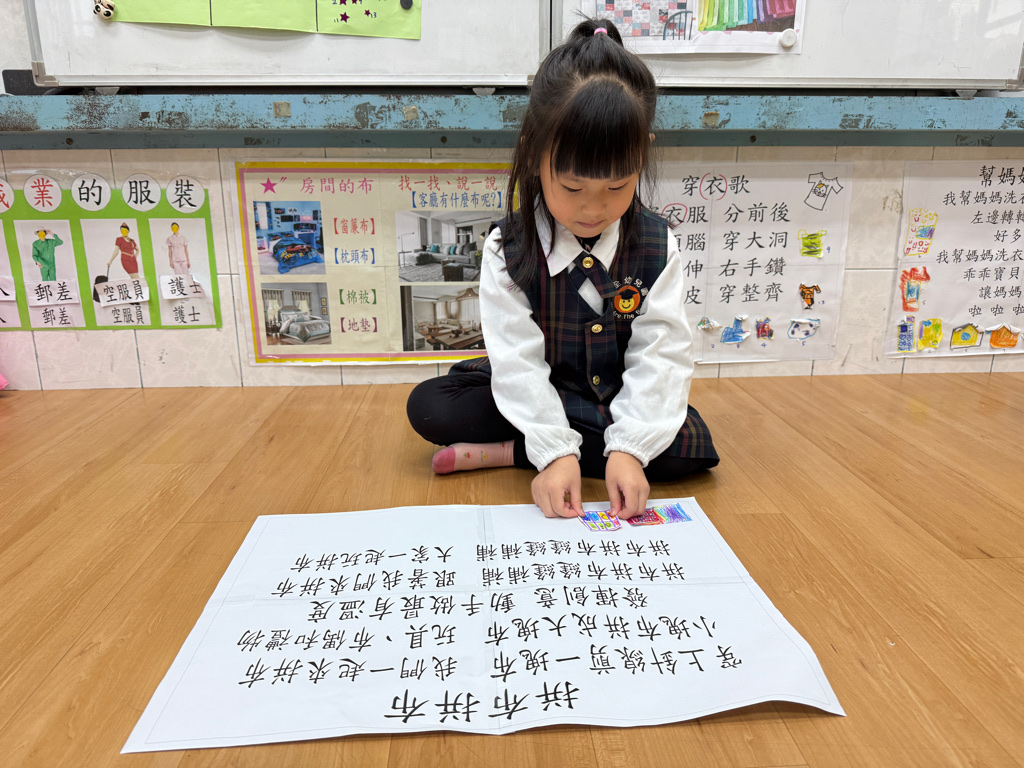 業的服裝
郵差 空服員 護士
郵差 空服員 護士
房間的布
【窗簾布】
【枕頭布】
【棉被】
【地墊】
找一找、說一說
【客廳有什麼布呢?】
穿衣歌
衣服 分前後
腦 穿大洞
伸 右手鑽
皮 穿整齊
幫媽媽
我幫媽媽洗衣
左邊轉轉
好多
我幫媽媽洗衣
乖乖寶貝
讓媽媽
啦 啦 啦
拼布拼布
穿上針線剪一塊布 我們一起來拼布
小塊布拼成大塊布 玩具、布偶和禮物
發揮創意 動手做最有溫度
拼布拼布縫縫補補 跟著我們來拼布
拼布拼布縫縫補補 大家一起玩拼布